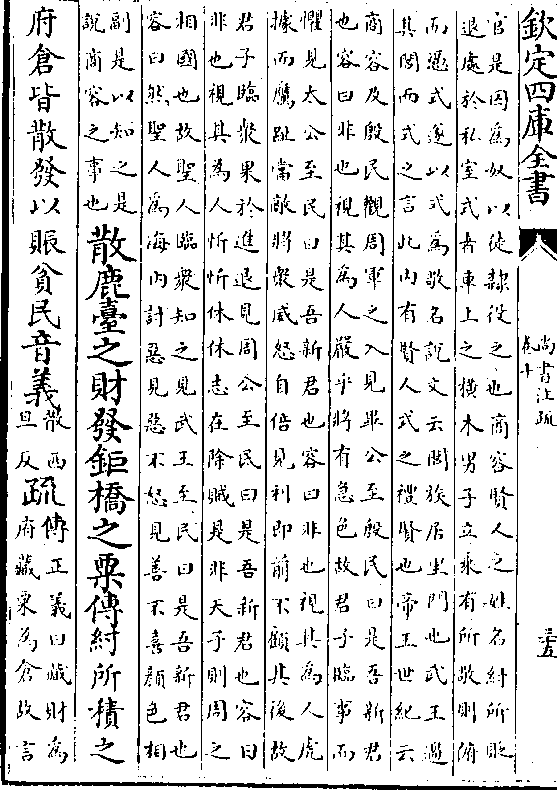 欽定四庫全書
尚書注疏
卷十
三五
官是因為奴以徒隸役之也商容賢人之姓名紂所貶
退處於私室式者車上之橫木男子立乘有所敬則俯
而憑式遂以式為敬名說文云閭族居里門也武王過
其閭而式之言此內有賢人式之禮賢也帝王世紀云
商容及殷民觀周軍之入見畢公至殷民曰是吾新君
也容曰非也視其為人嚴乎將有急色故君子臨事而
懼見太公至民曰是吾新君也容曰非也視其為人虎
據而鷹趾當敵將衆威怒自倍見利即前不顧其後故
君子臨衆果於進退見周公至民曰是吾新君也容曰
非也視其為人忻忻休休志在除賊是非天子則周之
相國也故聖人臨衆知之見武王至民曰是吾新君也
容曰然聖人為海內討惡見惡不怒見善不喜顏色相
副是以知之是
說商容之事也
散鹿臺之財發鉅橋之粟傳紂所積之
府倉皆散發以賑貧民音義
散西
旦反
疏
傳正義曰藏財為
府藏粟為倉故言